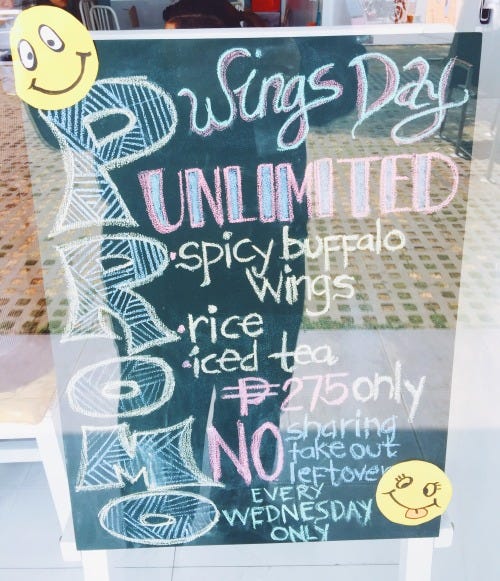 PROMO
Wings Day
UNLIMITED
·spicy buffalo
wings
·rice
·iced tea
₱275 only
NO sharing
take out
leftover
EVERY
WEDNESDAY
ONLY